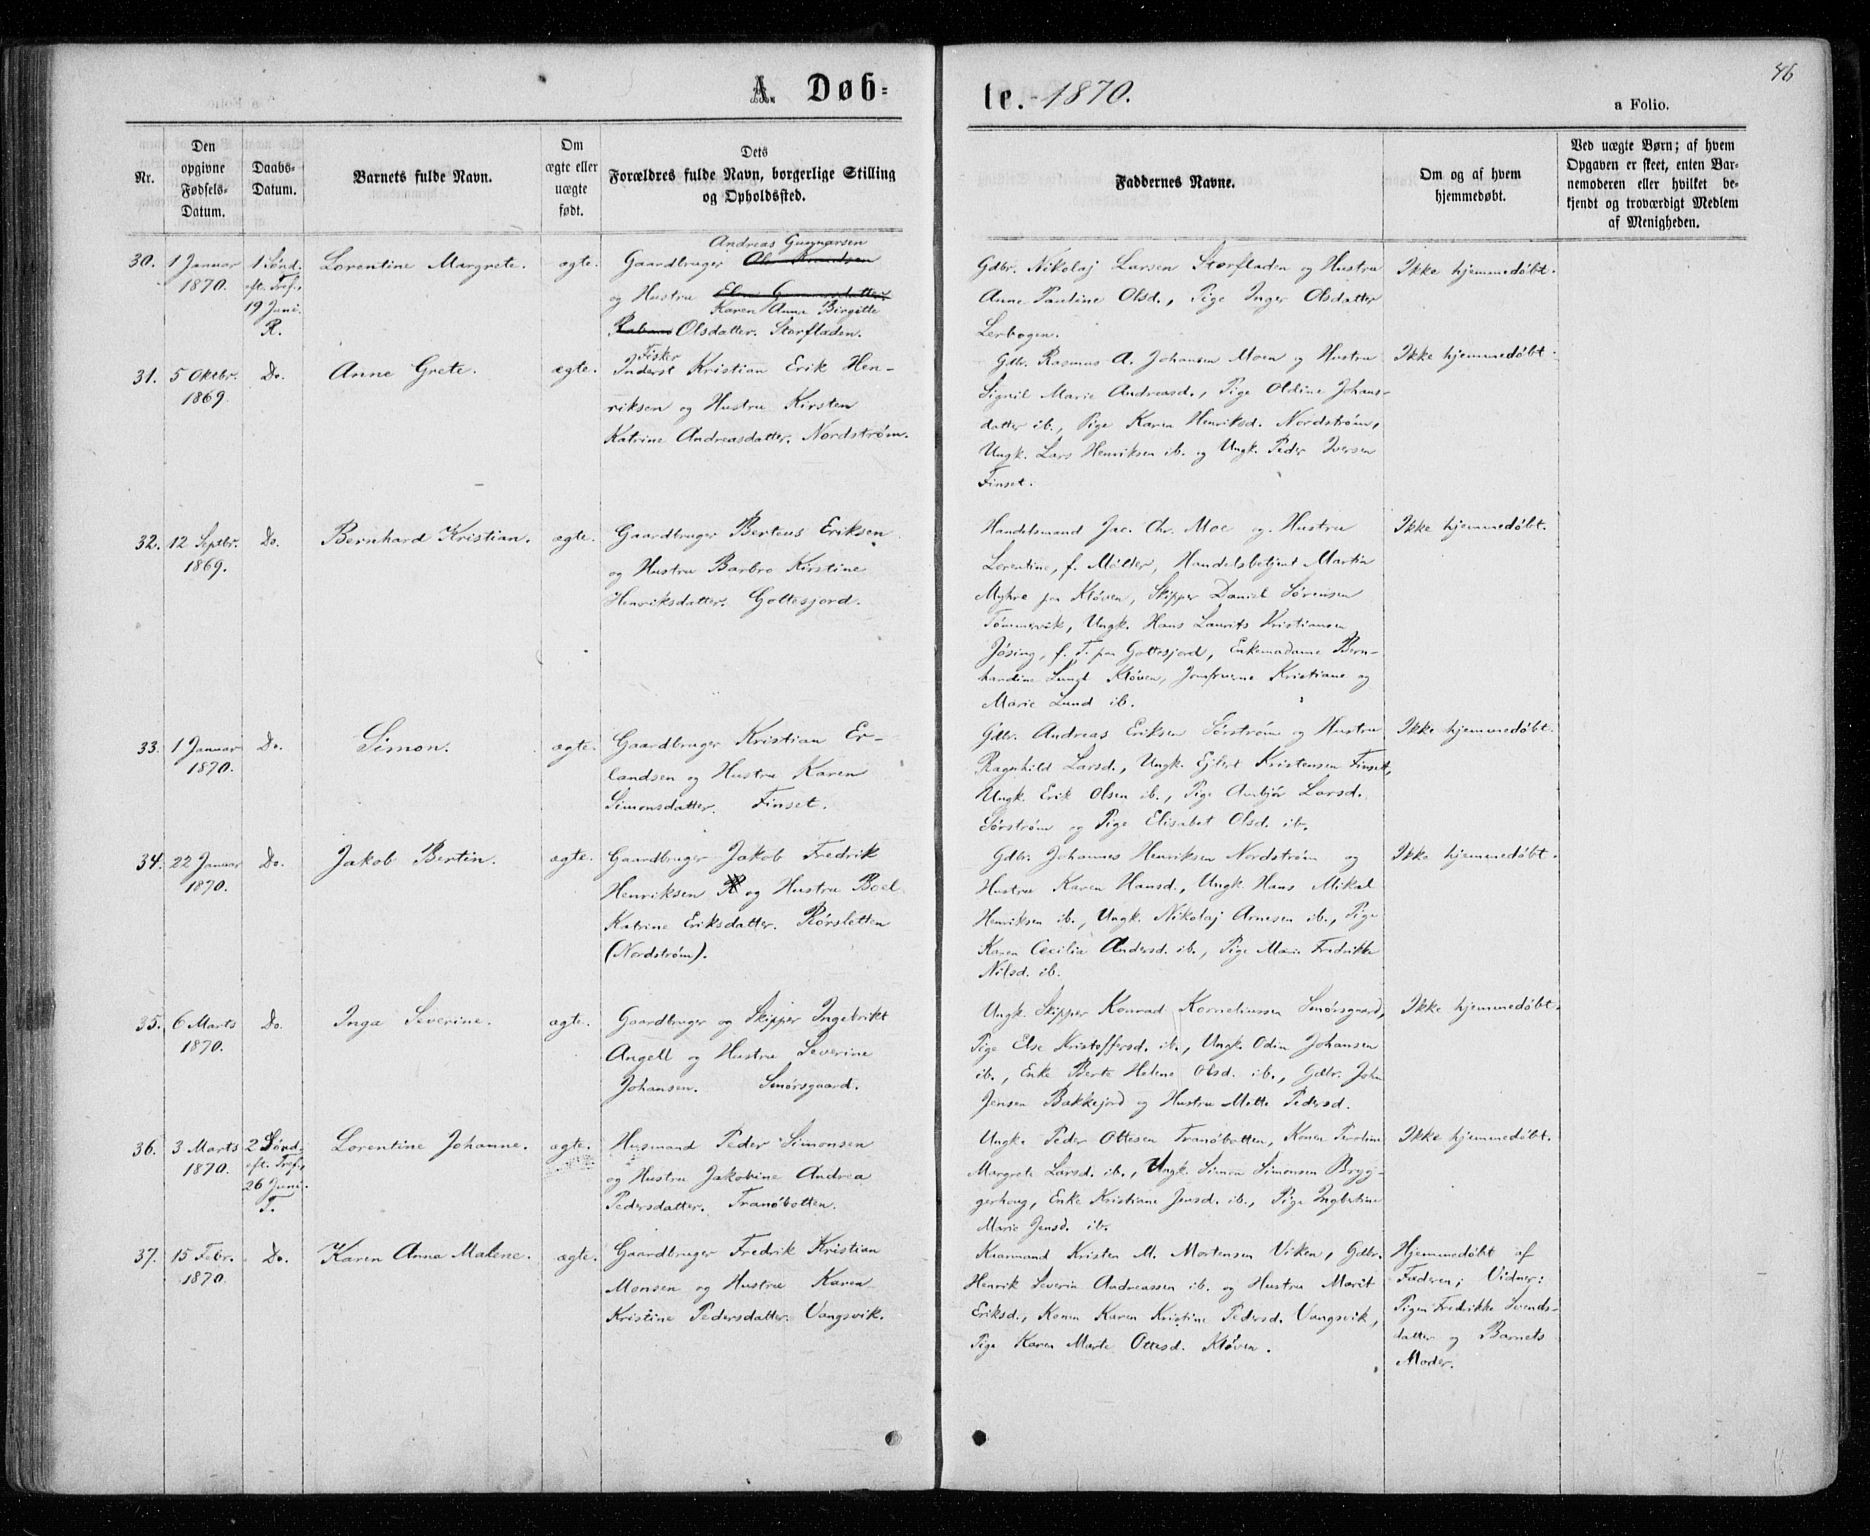 46
A. Døb-
te. 1870.
a Folio.
Nr.
Den
opgivne
Fødsels-
Datum.
Daabs-
Datum.
Barnets fulde Navn.
Om
ægte eller
uægte
født.
Dets
Forældres fulde Navn, borgerlige Stilling
og Opholdssted.
Faddernes Navne.
Om og af hvem
hjemmedøbt.
Ved uægte Børn; af hvem
Opgaven er skeet, enten Bar-
nemoderen eller hvilket be-
kjendt og troværdigt Medlem
af Menigheden.
30. 1 Januar
1870.
1 Sønd.
eft. Tref.,
19 Juni.
R.
Lorentine Margrete.
ægte.
Andreas Gunnarsen
Gaardbruger Ole Knudsen
og Hustru
Karen Anna Birgitte
Olsdatter. Storfladen.
Gdbr. Nikolaj Larsen Storfladen og Hustru
Anne Pauline Olsd., Pige Inger Olsdatter
Lerbogen.
Ikke hjemmedøbt.
31. 5 Oktbr.
1869.
Do.
Anne Grete.
ægte.
Fisker
Inderst Kristian Erik Hen-
riksen og Hustru Kirsten
Katrine Andreasdatter. Nordstrøm.
Gdbr. Rasmus A. Johansen Moen og Hustru
Signil Marie Andreasd., Pige Oldine Johans-
datter ib., Pige Karen Henriksd. Nordstrøm,
Ungk. Lars Henriksen ib. og Ungk. Peder Iversen
Finset.
Ikke hjemmedøbt.
32. 12 Septbr.
1869.
Do.
Bernhard Kristian.
ægte.
Gaardbruger Berteus Eriksen
og Hustru Barbro Kirstine
Henriksdatter. Gottesjord.
Handelsmand Jac. Chr. Moe og Hustru
Lorentine, f. Møller, Handelsbetjent Martin
Myhre paa Kløven, Skipper Daniel Sørensen
Tømmervik, Ungk. Hans Laurits Kristiansen
Jøsing, f. T. paa Gottesjord, Enkemadame Bern-
hardine Lund Kløven, Jomfruerne Kristiane og
Marie Lund ib.
Ikke hjemmedøbt.
33. 1 Januar
1870.
Do.
Simon.
ægte.
Gaardbruger Kristian Er-
landsen og Hustru Karen
Simonsdatter. Finset.
Gdbr. Andreas Eriksen Sørstrøm og Hustru
Ragnhild Larsd., Ungk. Ejlert Kristensen Finset,
Ungk. Erik Olsen ib., Pige Anbjør Larsd.
Sørstrøm og Pige Elisabet Olsd. ib.
Ikke hjemmedøbt.
34. 22 Januar
1870.
Do.
Jakob Bertin.
ægte.
Gaardbruger Jakob Fredrik
Henriksen og Hustru Boel
Katrine Eriksdatter. Rørsletten
(Nordstrøm).
Gdbr. Johannes Henriksen Nordstrøm og
Hustru Karen Hansd., Ungk. Hans Mikal
Henriksen ib., Ungk. Nikolaj Arnesen ib., Pige
Karen Cecilia Andersd. ib., Pige Marie Fredrikke
Nilsd. ib.
Ikke hjemmedøbt.
35. 6 Marts
1870.
Do.
Inga Severine.
ægte.
Gaardbruger og Skipper Ingebrikt
Angell og Hustru Severine
Johansen. Smørsgaard.
Ungk. Skipper Konrad Korneliussen Smørsgaard,
Pige Else Kristoffersd. ib., Ungk. Odin Johansen
ib., Enke Berte Helene Olsd. ib., Gdbr. John
Jensen Bakkejord og Hustru Mette Pedersd.
Ikke hjemmedøbt.
36. 3 Marts
1870.
2 Sønd.
eft. Tref.,
26 Juni.
T.
Lorentine Johanne.
ægte.
Husmand Peder Simonsen
og Hustru Jakobine Andrea
Pedersdatter. Tranøbotten.
Ungk. Peder Ottesen Tranøbotten, Konen Paroline
Margrete Larsd. ib., Ungk. Simon Simonsen Bryg-
gerhaug, Enke Kristiane Jensd. ib., Pige Ingbertine
Marie Jensd. ib.
Ikke hjemmedøbt.
37. 15 Febr.
1870.
Do.
Karen Anna Malene.
ægte.
Gaardbruger Fredrik Kristian
Monsen og Hustru Karen
Kristine Pedersdatter. Vangsvik.
Kaarmand Kristen M. Mortensen Viken, Gdbr.
Henrik Severin Andreassen ib. og Hustru Marit
Eriksd., Konen Karen Kristine Pedersd. Vangsvik,
Pige Karen Marte Ottesd. Kløven.
Hjemmedøbt af
Faderen; Vidner:
Pigen Fredrikke Svends-
datter og Barnets
Moder.